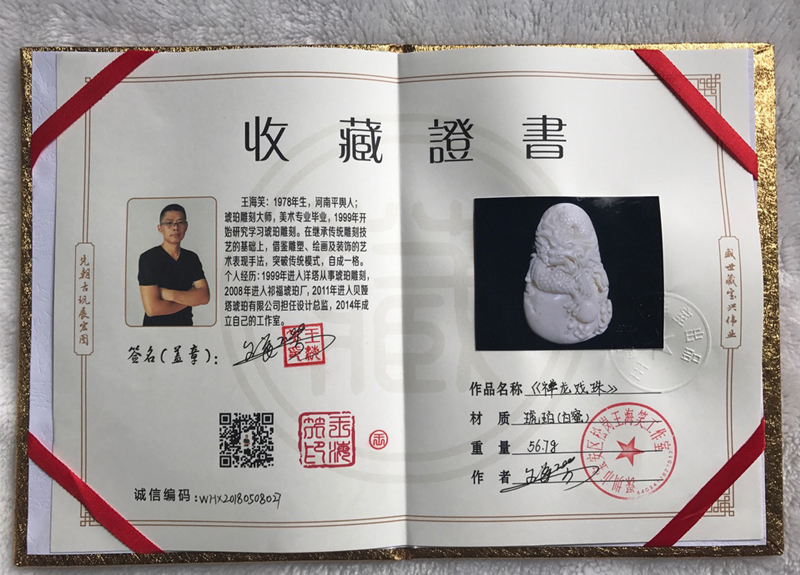 收藏證書
王海笑：1978年生，河南平舆人；
琥珀雕刻大师，美术专业毕业，1999年开
始研究学习琥珀雕刻。在继承传统雕刻技
艺的基础上，借鉴雕塑、绘画及装饰的艺
术表现手法，突破传统模式，自成一格。
个人经历：1999年进入洋塔从事琥珀雕刻，
2008年进入祁福琥珀厂，2011年进入贝娅
塔琥珀有限公司担任设计总监，2014年成
立自己的工作室。
签名(盖章)：
诚信编码：WHX20180508027
盛世藏宝兴伟业
作品名称 《禅龙戏珠》
材 质 琥珀(白蜜)
重 量 56.7g
作 者